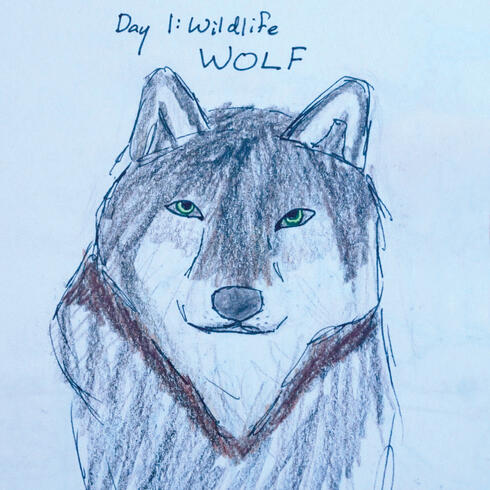 Day 1: Wildlife
WOLF